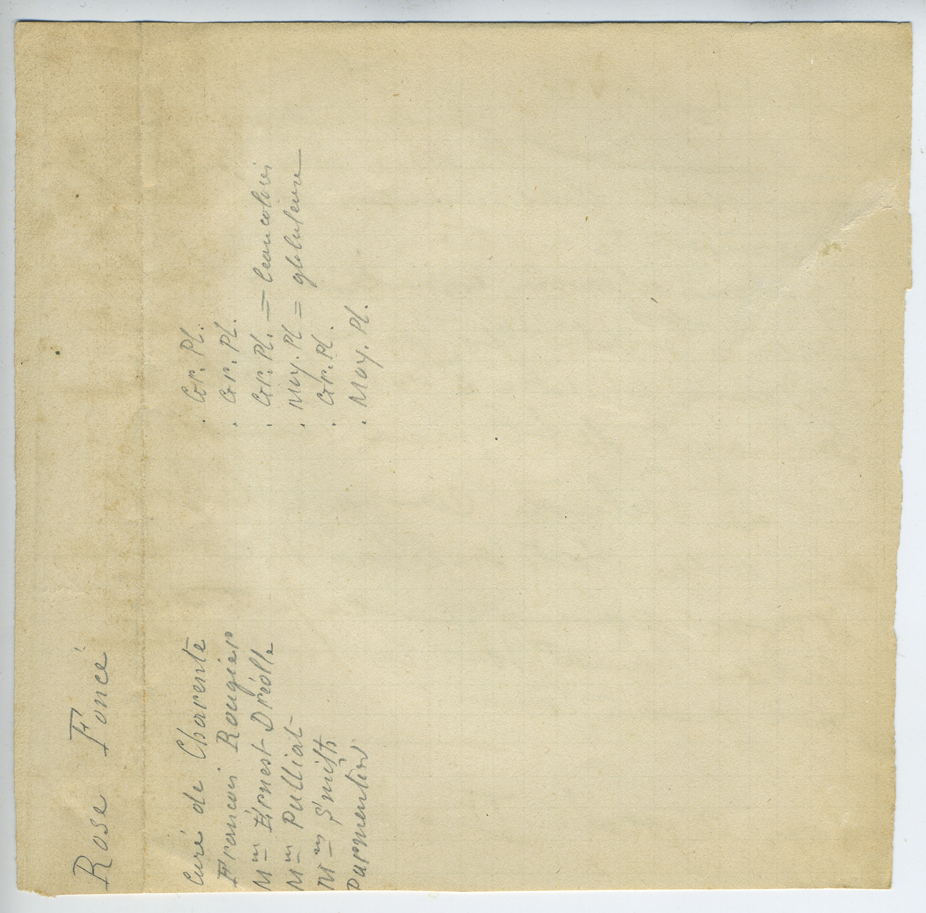 Rose Foncé
Curé de Charente . Gr. Pl.
Francois Rougier . Gr. Pl.
Mm Érnest Dréolle . Gr. Pl. = beau coloris
Mm Pulliat . Moy. Pl = globuleuse
Mm Smith . Gr. Pl.
Parmentier . Moy. Pl.